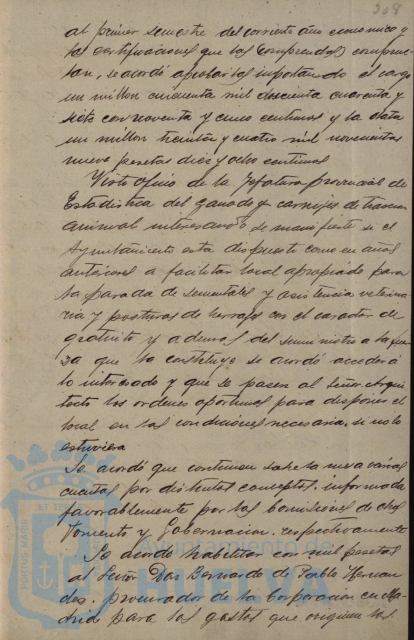 al primer semestre del corriente año economico y
las certificaciones que las comprenden comprue-
ban, se acordó aprobarlas importando el cargo
un millon cincuenta mil doscientas cuarenta y
siete con noventa y cinco centimos y la data
un millon treinta y cuatro mil novecientas
nueve pesetas diez y ocho centimos
Visto oficio de la Jefatura provincial de
Estadistica del ganado y carruajes de traccion
animal interesando se manifieste si el
Ayuntamiento esta dispuesto como en años
anteriores a facilitar local apropiado para
la parada de sementales y asistencia veterina-
ria y posturas de herraje con el caracter de
gratuito y ademas del suministro a la fuer-
za que la constituye se acordó acceder á
lo interesado y que se pasen al Señor Arqui-
tecto las ordenes oportunas para disponer el
local en las condiciones necesarias si no lo
estuviera
Se acordó que continuen sobre la mesa varias
cuentas por distintos conceptos, informadas
favorablemente por las Comisiones de
Fomento y Gobernacion, respectivamente
Se acordó habilitar con mil pesetas
al Señor Don Bernardo de Pablo Hernan-
dez, procurador de la Corporacion en Ma-
drid para los gastos que originen las
PORTUS MARIS ET TE
Ayuntamiento de
HUELVA